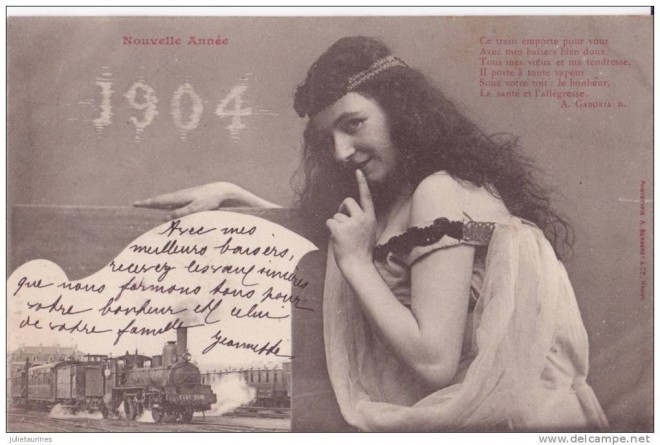 Nouvelle Année
1904
Ce train emporte pour vous
Avec mes baisers bien doux
Tous mes vœux et ma tendresse,
Il porte à toute vapeur
Sous votre toit: le bonheur,
La santé et l'allégresse.
A. Gaboria D.
Avec mes
meilleurs baisers,
recevez les vœux sincères
que nous formons tous pour
votre bonheur et celui
de votre famille
Jeannette
julietaurines
delcampe.net